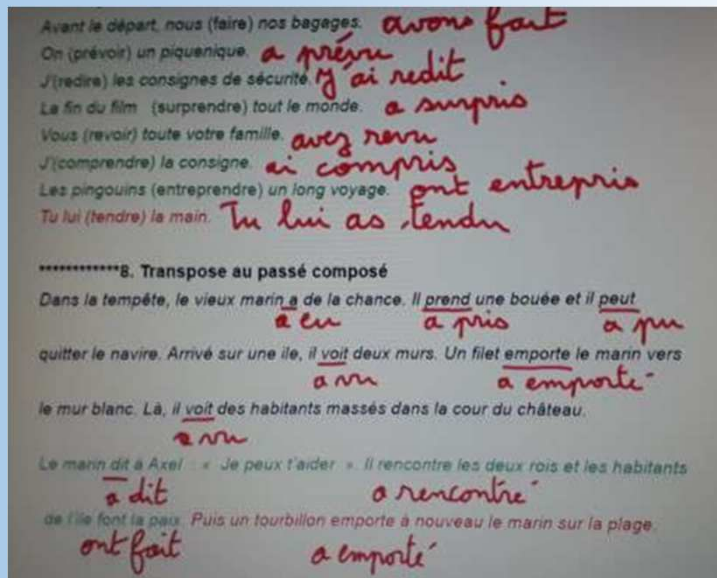 Avant le départ, nous (faire) nos bagages. avons fait
On (prévoir) un piquenique. a prévu
J'(redire) les consignes de sécurité. J'ai redit
La fin du film (surprendre) tout le monde. a surpris
Vous (revoir) toute votre famille. avez revu
J'(comprendre) la consigne. ai compris
Les pingouins (entreprendre) un long voyage. ont entrepris
Tu lui (tendre) la main. Tu lui as tendu
************8. Transpose au passé composé
Dans la tempête, le vieux marin a de la chance. Il prend une bouée et il peut
a eu a pris a pu
quitter le navire. Arrivé sur une ile, il voit deux murs. Un filet emporte le marin vers
a vu a emporté
le mur blanc. Là, il voit des habitants massés dans la cour du château.
a vu
Le marin dit à Axel : « Je peux t'aider ». Il rencontre les deux rois et les habitants
a dit a rencontré
de l'ile font la paix. Puis un tourbillon emporte à nouveau le marin sur la plage.
ont fait a emporté